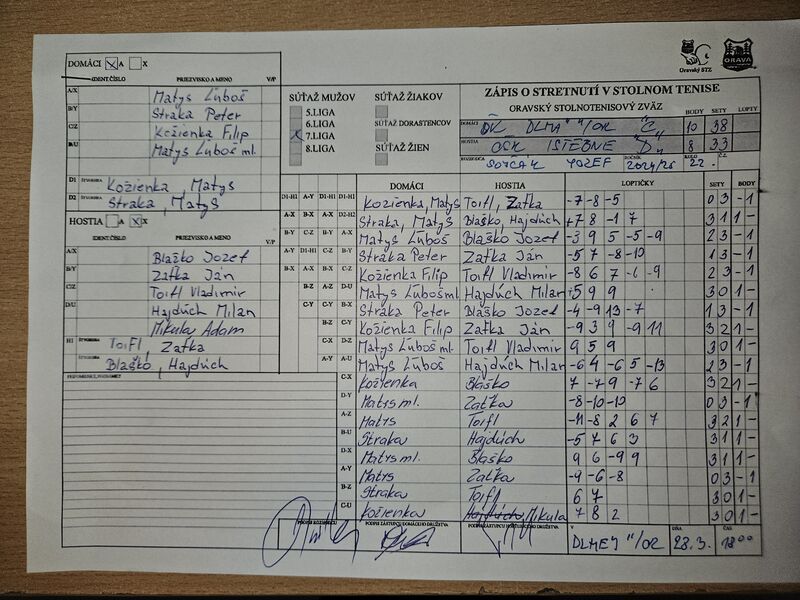 DOMÁCI A X
IDENT.ČÍSLO PRIEZVISKO A MENO V/P
A/X Matys Ľuboš
B/Y Straka Peter
C/Z Kožienka Filip
D/U Matys Ľuboš ml.
D1 ŠTVORHRA Kožienka, Matys
D2 ŠTVORHRA Straka, Matyš
HOSTIA A X
IDENT.ČÍSLO PRIEZVISKO A MENO V/P
A/X Blaško Jozef
B/Y Zaťka Ján
C/Z Toifl Vladimír
D/U Hajdúch Milan
Mikula Adam
H1 ŠTVORHRA Toifl, Zaťka
ŠTVORHRA Blaško, Hajdúch
SÚŤAŽ MUŽOV
5.LIGA
6.LIGA
7.LIGA
8.LIGA
SÚŤAŽ ŽIAKOV
SÚŤAŽ DORASTENCOV
SÚŤAŽ ŽIEN
Oravský STZ
ORAVA
ZÁPIS O STRETNUTÍ V STOLNOM TENISE
ORAVSKÝ STOLNOTENISOVÝ ZVÄZ
BODY SETY LOPTY
DOMÁCI 10 38
HOSTIA OŠK ISTEBNÉ "D" 8 33
ROZHODCA JOZEF ROČNÍK 2024/25 KOLO 22. Č.Z.
DOMÁCI HOSTIA LOPTIČKY SETY BODY
D1-H1 A-Y D1-H1 D1-H1 Kožienka, Matys Toifl, Zaťka -7 -8 -5 0 3 -1
A-X B-X A-X D2-H2 Straka, Matyš Blaško, Hajdúch +7 8 -1 7 3 1 1-
B-Y C-Z B-Y A-X Matyš Ľuboš Blaško Jozef -3 9 5 -5 -9 2 3 -1
A-Y D1-H1 C-Z B-Y Straka Peter Zaťka Ján -5 7 -8 -10 1 3 -1
B-X A-X B-X C-Z Kožienka Filip Toifl Vladimír -8 6 7 -6 -9 2 3 -1
B-Z A-Z D-U Matys Ľuboš ml. Hajdúch Milan 5 9 9 3 0 1-
C-Y C-Y B-X Straka Peter Blaško Jozef -4 -9 13 -7 1 3 -1
B-Z C-Y Kožienka Filip Zaťka Ján -9 3 9 -9 11 3 2 1-
C-X D-Z Matyš Ľuboš ml. Toifl Vladimír 9 5 9 3 0 1-
A-Y A-U Matys Ľuboš Hajdúch Milan -6 4 -6 5 -13 2 3 -1
C-X Kožienka Blaško 7 -7 -9 7 6 3 2 1-
D-Y Matys ml. Zaťka -8 -10 -10 0 3 -1
A-Z Matys Toifl -11 -8 2 6 7 3 2 1-
B-U Straka Hajdúch -5 7 6 3 3 1 1-
D-X Matys ml. Blaško 9 6 -9 9 3 1 1-
A-Y Matys Zaťka -9 -6 -8 0 3 -1
B-Z Straka Toifl 6 7 3 0 1-
C-U Kožienka Mikula 7 8 2 3 0 1-
PODPIS ROZHODCU PODPIS ZÁSTUPCU DOMÁCEHO DRUŽSTVA PODPIS ZÁSTUPCU HOSŤUJÚCEHO DRUŽSTVA V DLHEJ n/OR DŇA 28.3. ČAS 18:00
PRIPOMIENKY, POZNÁMKY